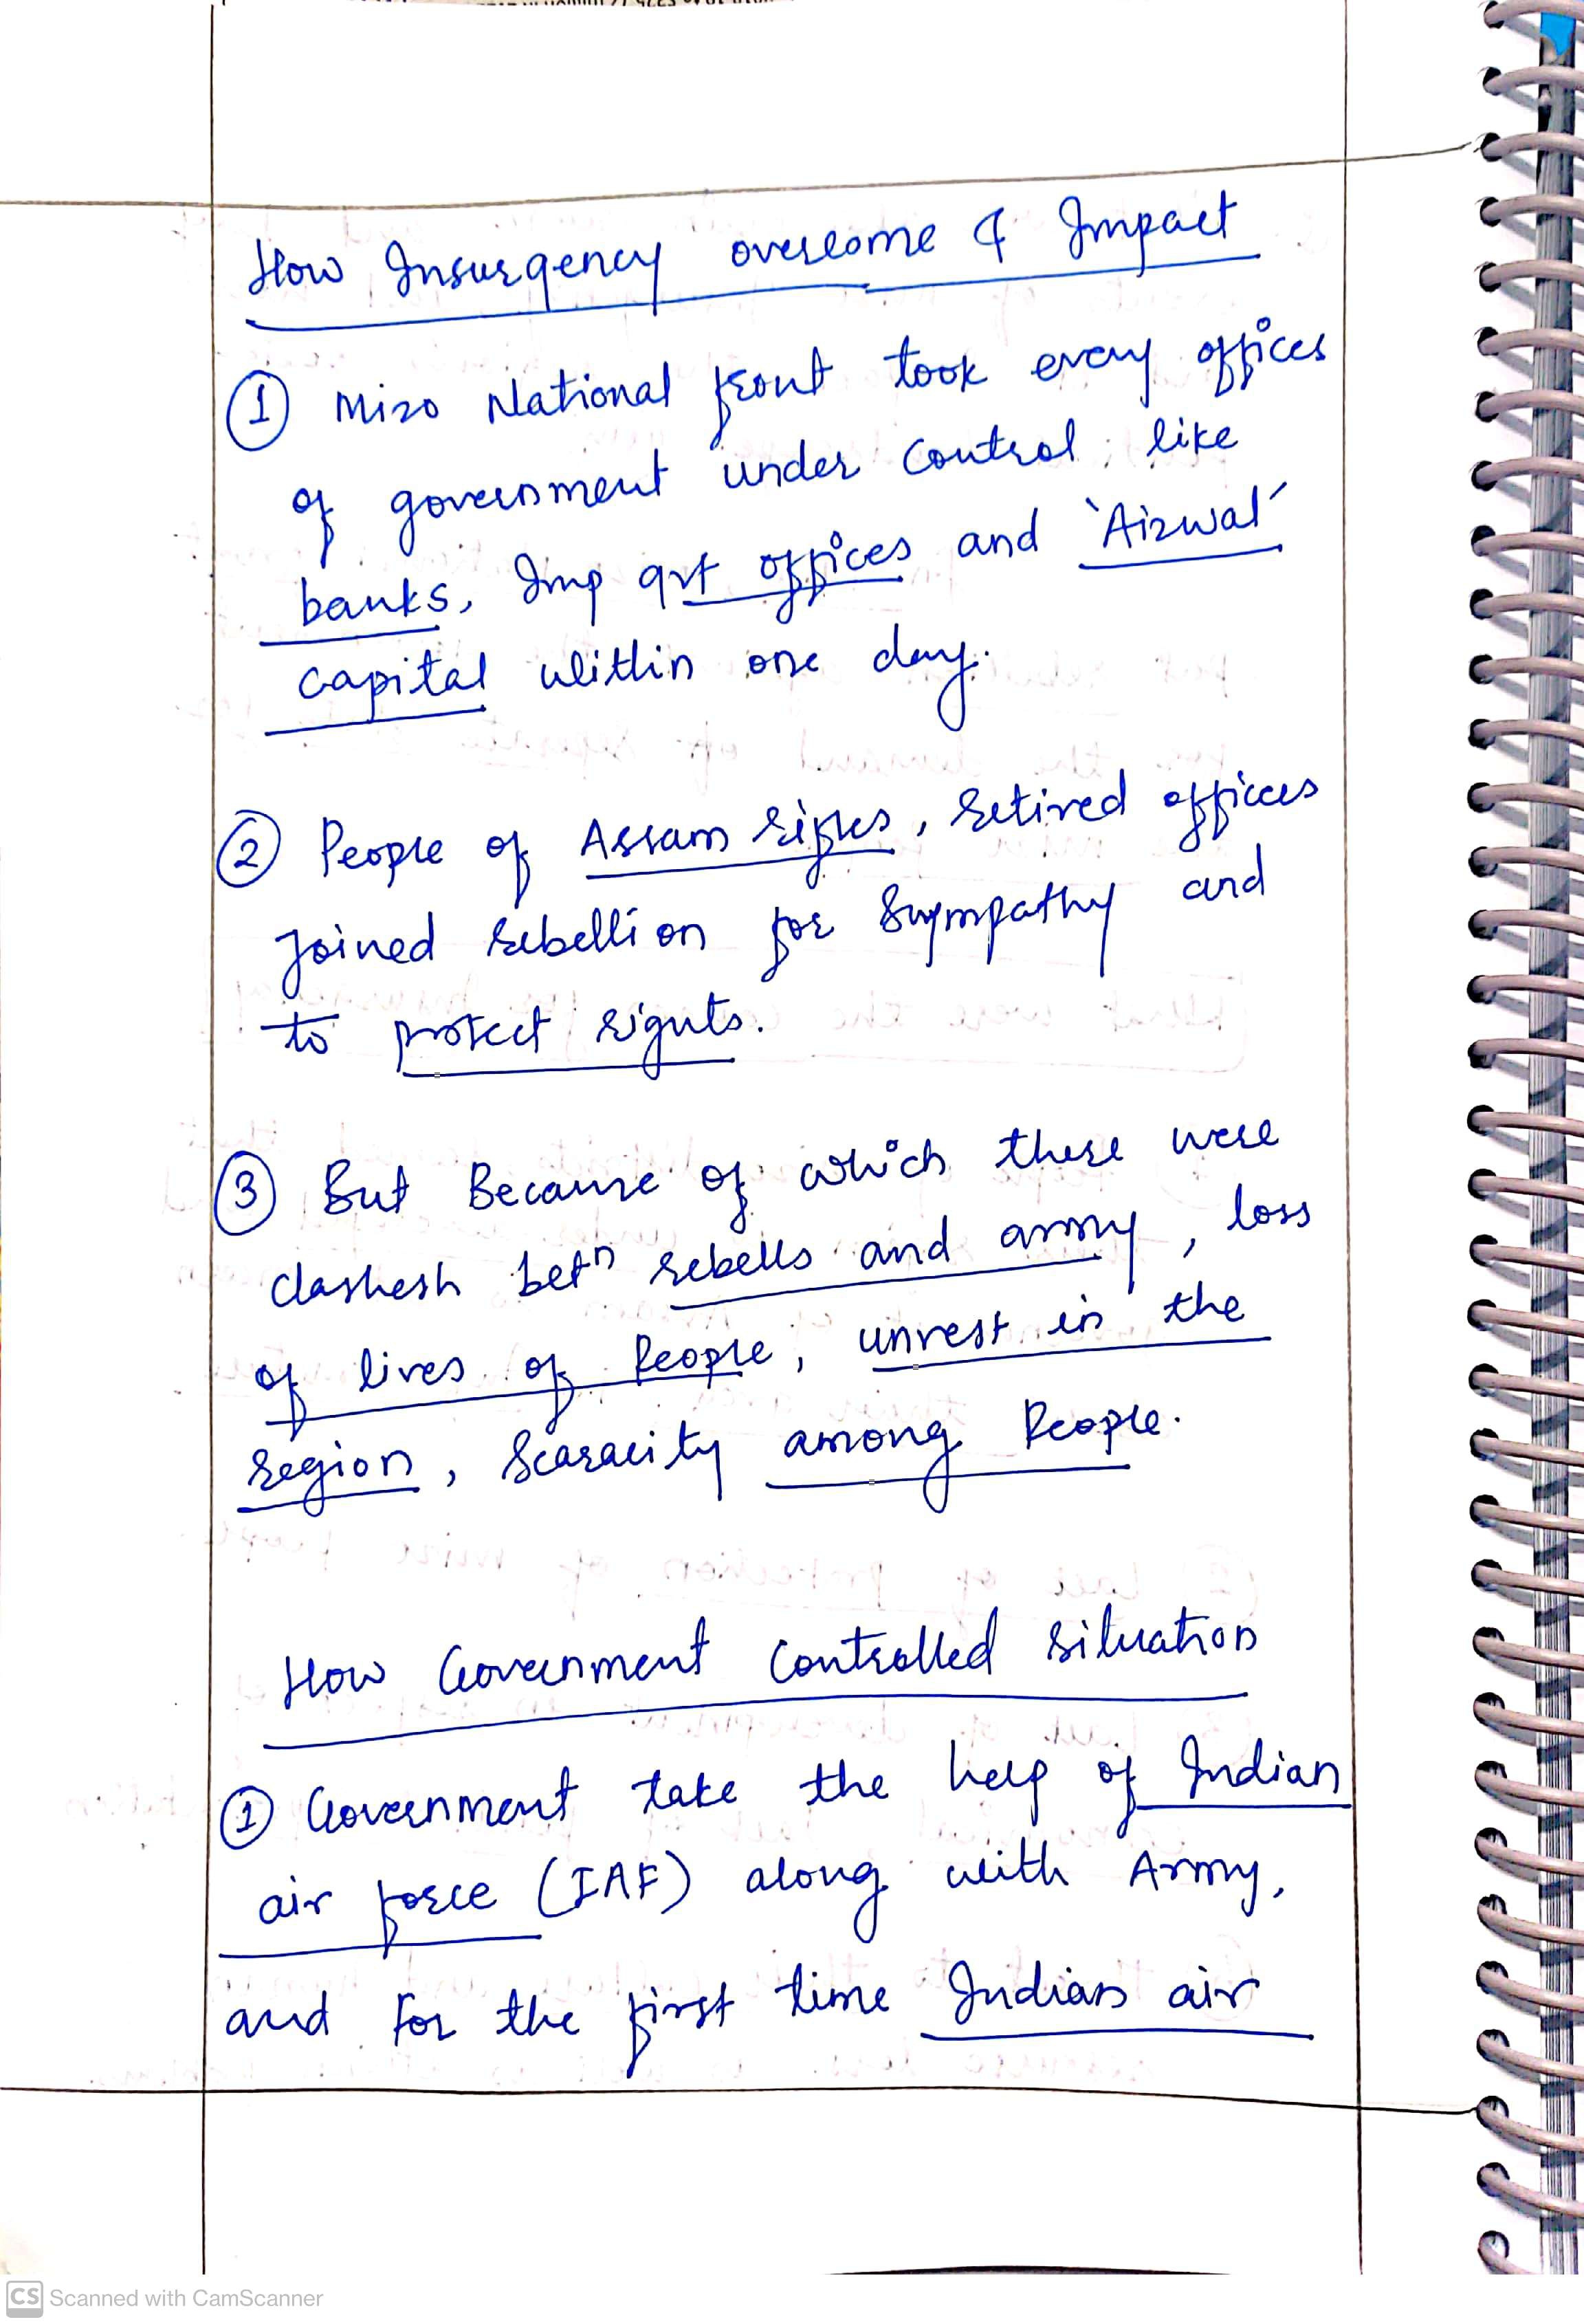 How Insurgency overcome & Impact
① Mizo National front took every offices
of government under control, like
banks, Imp gvt offices and 'Aizwal'
capital within one day.
② People of Assam rifles, retired offices
Joined rebellion for sympathy and
to protect rights.
③ But Because of which there were
clashesh betn rebells and army, loss
of lives of People, unrest in the
region, Scaracity among People.
How Government controlled situation
① Government take the help of Indian
air force (IAF) along with Army,
and For the first time Indian air
CS Scanned with CamScanner